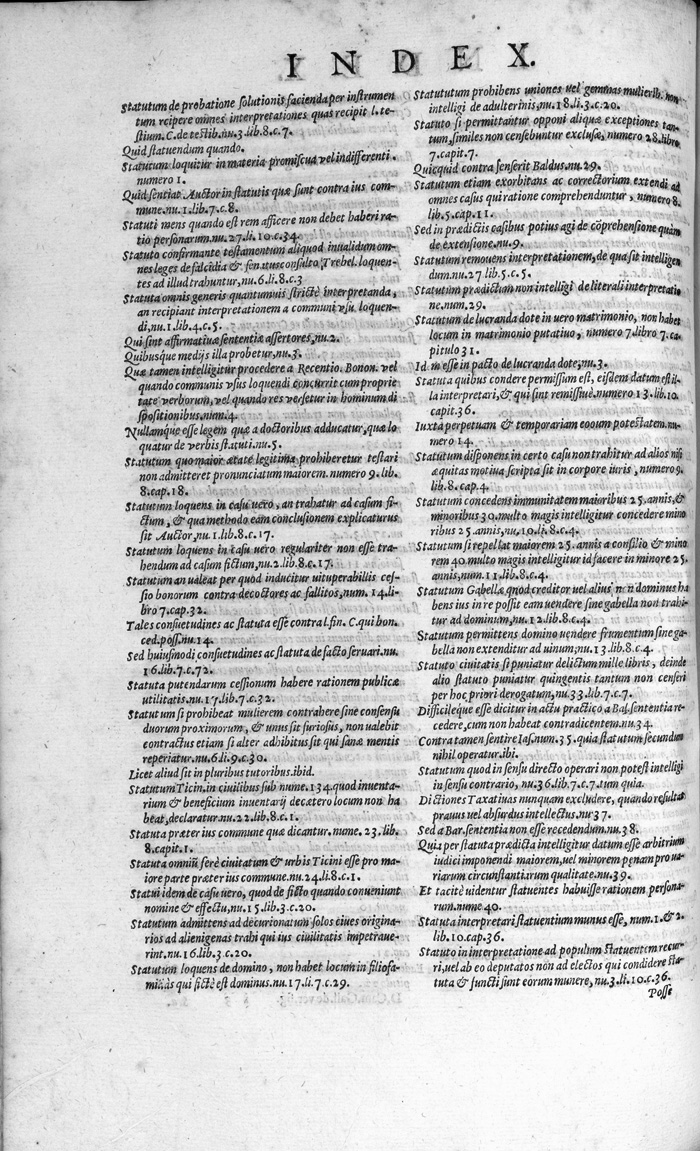 INDEX.
Statutum de probatione solutionis facienda per instrumen
tum recipere omnes interpretationes quas recipit l. te-
stium. C. de testib. nu. 3. lib. 8. c. 7.
Quid statuendum quando.
Statutum loquitur in materia promiscua vel indifferenti.
numero 1.
Quid sentiat Auctor in statutis quæ sunt contra ius com-
mune. nu. 1. lib. 7. c. 8.
Statuti mens quando est rem afficere non debet haberi ra-
tio personarum. nu. 27. li. 10. c. 34.
Statuto confirmante testamentum aliquod inualidum om-
nes leges de falcidia & senatusconsulto Trebel. loquen-
tes ad illud trahuntur, nu. 6. li. 8. c. 3
Statuta omnis generis quantumuis strictè interpretanda,
an recipiant interpretationem a communi vsu loquen-
di, nu. 1. lib. 4. c. 5.
Qui sint affirmatiuæ sententiæ assertores, nu. 2.
Quibusque medijs illa probetur, nu. 3.
Quæ tamen intelligitur procedere a Recentio. Bonon. vel
quando communis vsus loquendi concurrit cum proprie
tate verborum, vel quando res versetur in hominum di
spositionibus, num. 4.
Nullamque esse legem quæ a doctoribus adducatur, quæ lo
quatur de verbis statuti. nu. 5.
Statutum quo maior ætate legitima prohiberetur testari
non admitteret pronunciatum maiorem. numero 9. lib.
8. cap. 18.
Statutum loquens in casu vero, an trahatur ad casum fi-
ctum, & qua methodo eam conclusionem explicaturus
sit Auctor, nu. 1. lib. 8. c. 17.
Statutum loquens in casu uero regulariter non esse tra-
hendum ad casum fictum, nu. 2. lib. 8. c. 17.
Statutum an ualeat per quod inducitur uituperabilis ces-
sio bonorum contra decoctores ac fallitos, num. 14. li-
bro 7. cap. 32.
Tales consuetudines ac statuta esse contra l. fin. C. qui bon.
ced. poss. nu. 14.
Sed huiusmodi consuetudines ac statuta de facto seruari. nu.
16. lib. 7. c. 72.
Statuta putendarum cessionum habere rationem publicæ
utilitatis. nu. 17. lib. 7. c. 32.
Statutum si prohibeat mulierem contrahere sine consensu
duorum proximorum, & unus sit furiosus, non ualebit
contractus etiam si alter adhibitus sit qui sanæ mentis
reperiatur. nu. 6. li. 9. c. 30.
Licet aliud sit in pluribus tutoribus. ibid.
Statutum Ticin. in ciuilibus sub nume. 134. quod inuenta-
rium & beneficium inuentarij de cætero locum non ha
beat, declaratur. nu. 22. lib. 8. c. 1.
Statuta præter ius commune quæ dicantur. nume. 23. lib.
8. capit. 1.
Statuta omniũ ferè ciuitatum & urbis Ticini esse pro ma-
iore parte præter ius commune. nu. 24. li. 8. c. 1.
Statui idem de casu uero, quod de ficto quando conueniunt
nomine & effectu, nu. 15. lib. 3. c. 20.
Statutum admittens ad decurionatum solos ciues origina-
rios ad alienigenas trahi qui ius ciuilitatis impetraue-
rint. nu. 16. lib. 3. c. 20.
Statutum loquens de domino, non habet locum in filiofa-
miliâs qui fictè est dominus. nu. 17. li. 7. c. 29.
Statututum prohibens uniones uel gemmas mulierib. non
intelligi de adulterinis, nu. 18. li. 3. c. 20.
Statuto si permittantur opponi aliquæ exceptiones tan-
tum, similes non censebuntur exclusæ, numero 28. libro
7. capit. 7.
Quicquid contra senserit Baldus. nu. 29.
Statutum etiam exorbitans ac correctorium extendi ad
omnes casus qui ratione comprehenduntur, numero 8.
lib. 5. cap. 11.
Sed in prædictis casibus potius agi de cõprehensione quàm
de extensione. nu. 9.
Statutum remouens interpretationem, de qua sit intelligen
dum. nu. 27 lib. 5. c. 5.
Statutum prædictum non intelligi de literali interpretatio
ne. num. 29.
Statutum de lucranda dote in uero matrimonio, non habet
locum in matrimonio putatiuo, numero 7. libro 7. ca-
pitulo 31.
Id. m esse in pacto de lucranda dote, nu. 3.
Statuta quibus condere permissum est, eisdem datum est il-
la interpretari, & qui sint remissiuè. numero 13. lib. 10.
capit. 36.
Iuxta perpetuam & temporariam eorum potestatem. nu-
mero 14.
Statutum disponens in certo casu non trahitur ad alios nisi
æquitas motiua scripta sit in corpore iuris, numero 9.
lib. 8. cap. 4.
Statutum concedens immunitatem maioribus 25. annis, &
minoribus 30. multo magis intelligitur concedere mino
ribus 25. annis, nu. 10. li. 8. c. 4.
Statutum si repellat maiorem 25. annis a consilio & mino
rem 40. multo magis intelligitur id facere in minore 25.
annis, num. 11. lib. 8. c. 4.
Statutum Gabellæ quod creditor uel alius non dominus ha
bens ius in re possit eam uendere sine gabella non trahi-
tur ad dominum, nu. 12. lib. 8. c. 4.
Statutum permittens domino uendere frumentum sine ga-
bella non extenditur ad uinum, nu. 13. lib. 8. c. 4.
Statuto ciuitatis si puniatur delictum mille libris, deinde
alio statuto puniatur quingentis tantum non censeri
per hoc priori derogatum, nu. 33. lib. 7. c. 7.
Difficileque esse dicitur in actu practico a Bal. sententia re-
cedere, cum non habeat contradicentem. nu. 34.
Contra tamen sentire Ias. num. 35. quia statutum secundum
nihil operatur. ibi.
Statutum quod in sensu directo operari non potest intelligi
in sensu contrario, nu. 36. lib. 7. c. 7. tum quia.
Dictiones Taxatiuas nunquam excludere, quando resultat
prauus uel absurdus intellectus. nu. 37.
Sed a Bar. sententia non esse recedendum. nu. 38.
Quia per statuta prædicta intelligitur datum esse arbitrium
iudici imponendi maiorem, uel minorem pœnam pro ua-
riarum circunstantiarum qualitate. nu. 39.
Et tacitè uidentur statuentes habuisse rationem persona-
rum. nume. 40.
Statuta interpretari statuentium munus esse, num. 1. & 2.
lib. 10. cap. 36.
Statuto in interpretatione ad populum statuentem recur-
ri, uel ab eo deputatos non ad electos qui condidere sta-
tuta & functi sunt eorum munere, nu. 3. li. 10. c. 36.
Posse